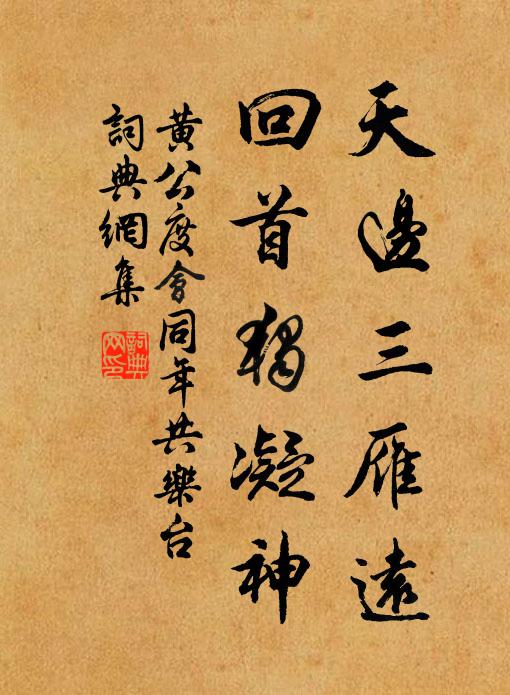 天邊三雁遠
回首獨凝神
黃公度會同年共樂台
詞典網集
詞典網印